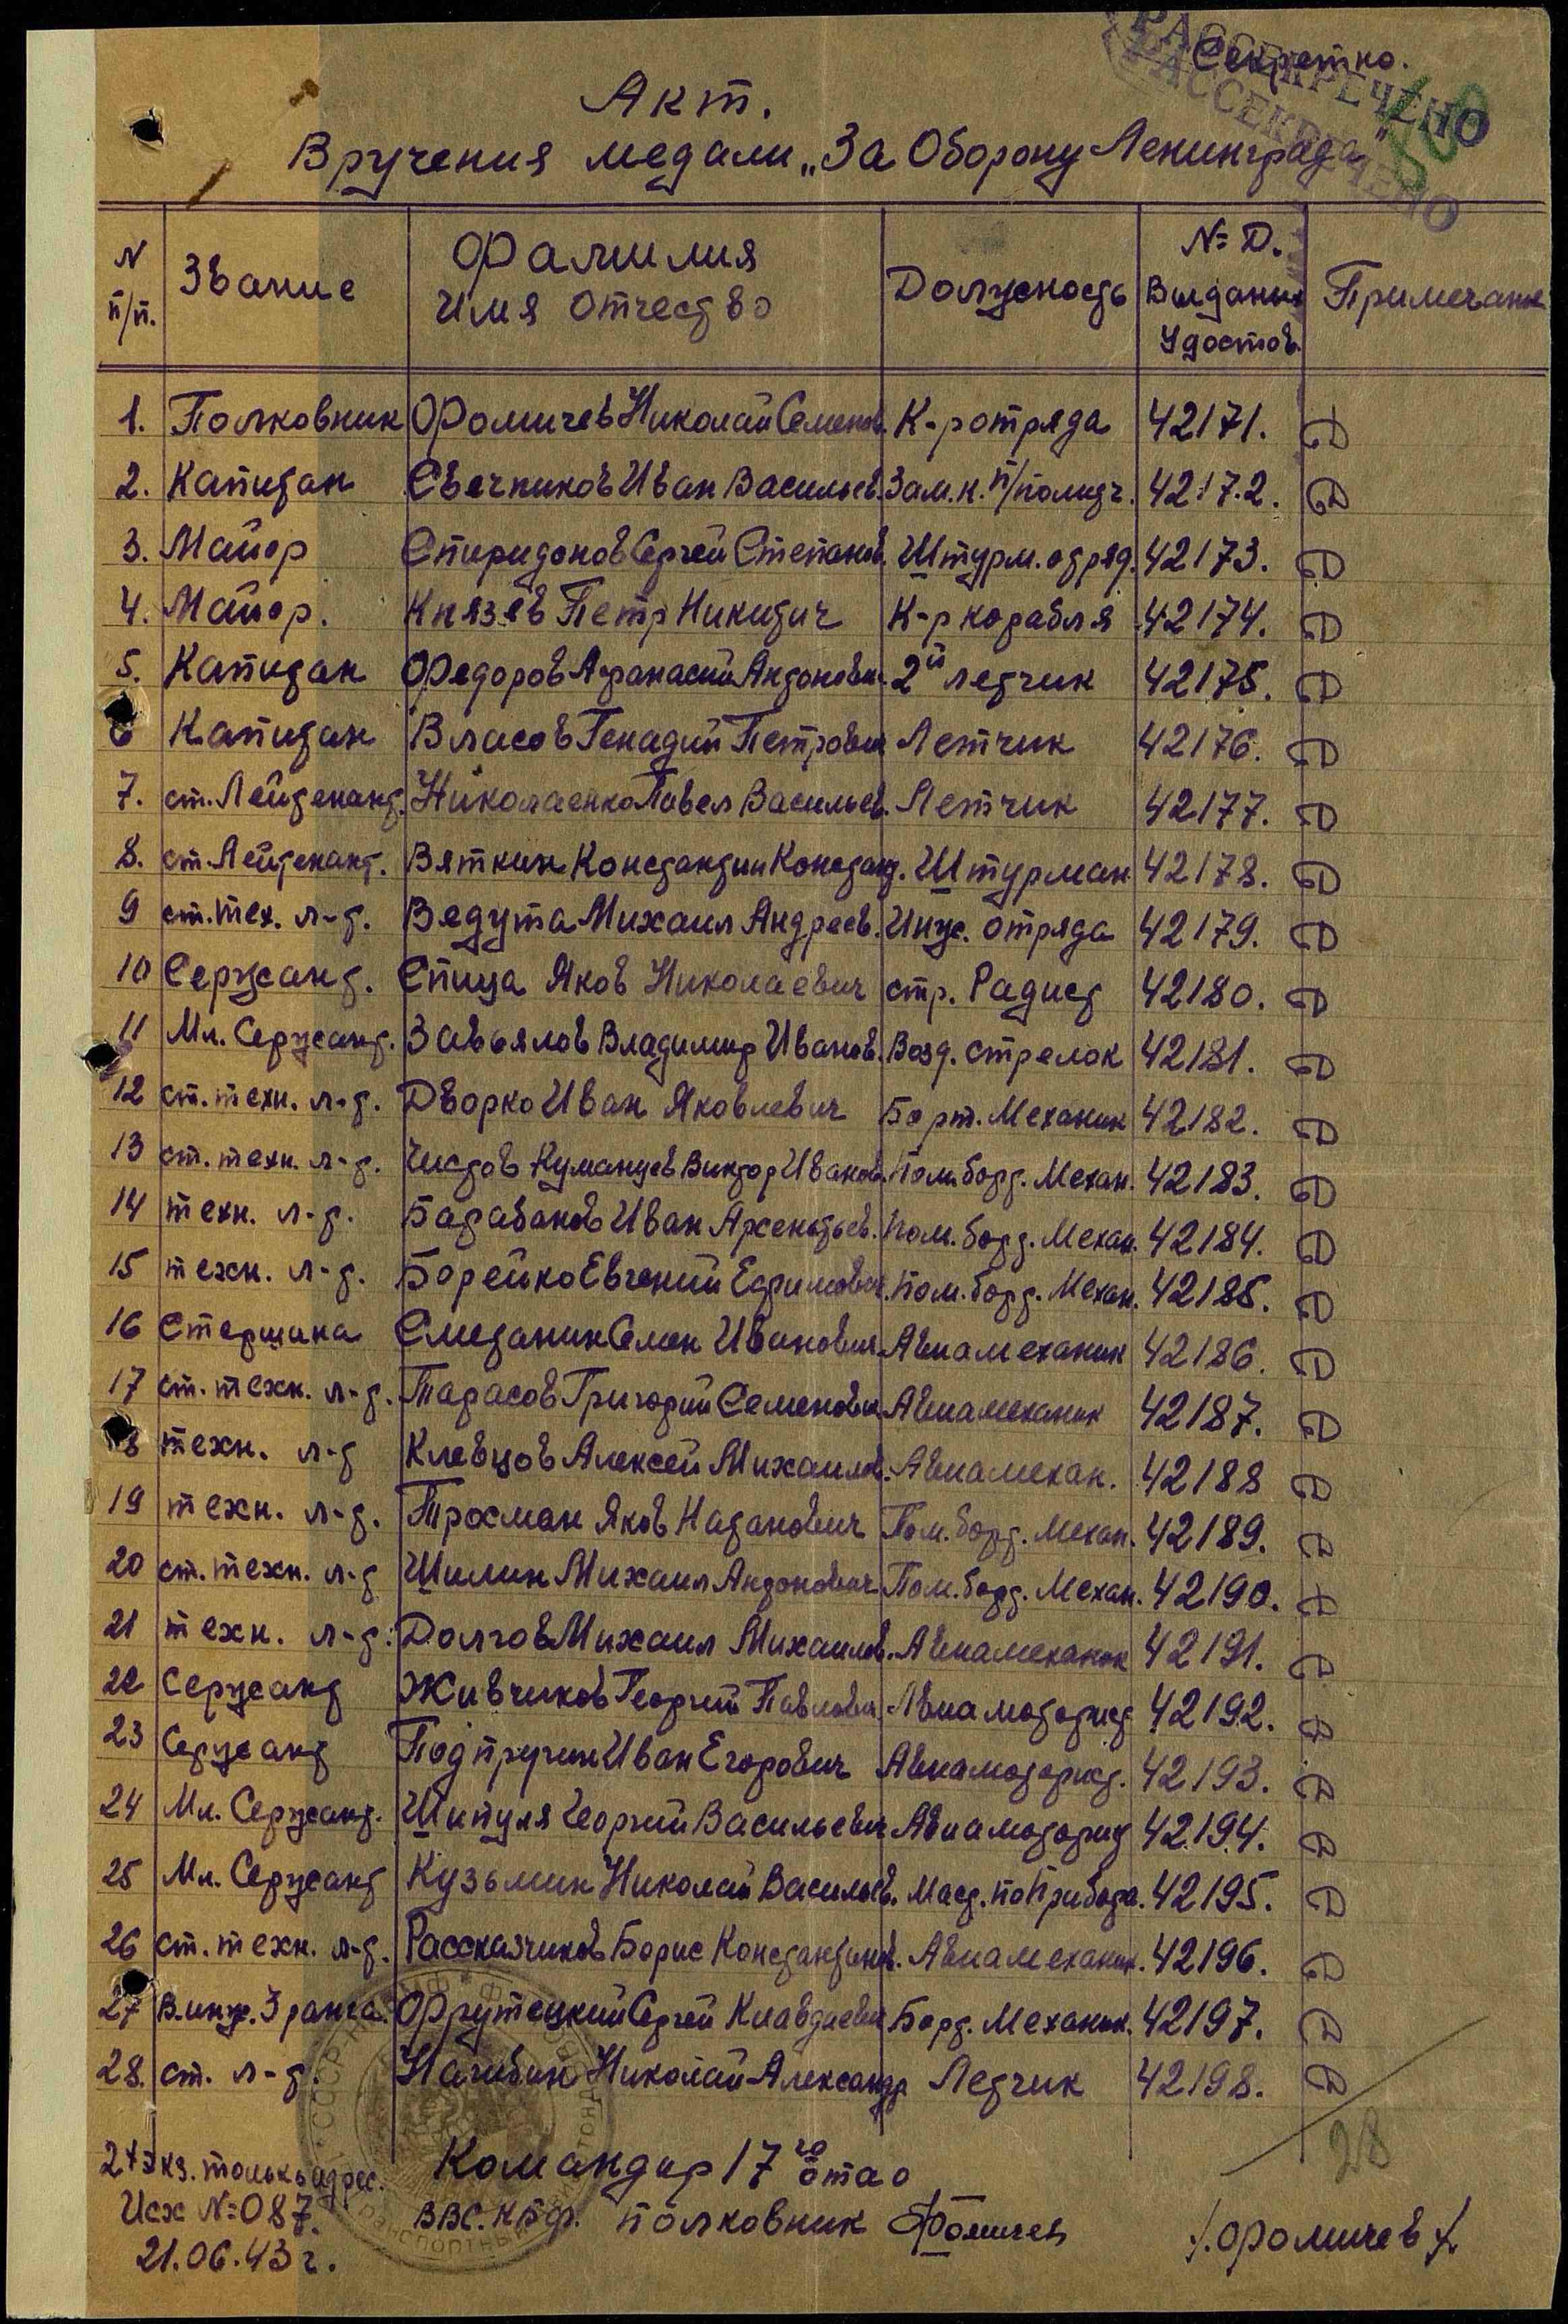 Секретно.
РАССЕКРЕЧЕНО
РАССЕКРЕЧЕНО
Акт.
Вручения медали „За Оборону Ленинграда"
N п/п. Звание Фамилия Имя Отчество Должность №Д. Выданных Удостов. Примечание
1. Полковник Фомичев Николай Семенов. К-р отряда 42171.
2. Капитан Свечников Иван Васильев. Зам. к. п/полит. 42172.
3. Майор Спиридонов Сергей Степанов. Штурм. отряд. 42173.
4. Майор. Князев Петр Никитич К-р корабля 42174.
5. Капитан Федоров Афанасий Антонович 2й летчик 42175.
6 Капитан Власов Генадий Петрович Летчик 42176.
7. ст. Лейтенант. Николаенко Павел Васильев. Летчик 42177.
8. ст. Лейтенант. Вяткин Константин Констант. Штурман 42178.
9 ст. тех. л-т. Ведута Михаил Андреев. Инж. отряда 42179.
10 Сержант. Спица Яков Николаевич стр. Радист 42180.
11 Мл. Сержант. Завьялов Владимир Иванов. Возд. стрелок 42181.
12 ст. техн. л-т. Дворко Иван Яковлевич Борт. Механик 42182.
13 ст. техн. л-т. Чистов Куманцев Виктор Иванов. Пом. борт. Механ. 42183.
14 техн. л-т. Барабанов Иван Арсентьев. Пом. борт. Механ. 42184.
15 техн. л-т. Борейко Евгений Ефимович. Пом. борт. Механ. 42185.
16 Старшина Сметанин Семен Иванович Авиамеханик 42186.
17 ст. техн. л-т. Тарасов Григорий Семенович Авиамеханик 42187.
18 техн. л-т Клевцов Алексей Михаилов. Авиамехан. 42188
19 техн. л-т. Тросман Яков Натанович Пом. борт. Механ. 42189.
20 ст. техн. л-т Шилин Михаил Антонович Пом. борт. Механ. 42190.
21 техн. л-т. Долгов Михаил Михаилов. Авиамеханик 42191.
22 Сержант Живчиков Георгий Павлович Авиамоторист 42192.
23 Сержант Подпругин Иван Егорович Авиамоторист. 42193.
24 Мл. Сержант. Шипуля Георгий Васильевич Авиамоторист 42194.
25 Мл. Сержант Кузьмин Николай Васильев. Маст. по Прибора. 42195.
26 ст. техн. л-т. Рассказчиков Борис Константинов. Авиамеханик. 42196.
27 В. инж. 3 ранга. Фрутецкий Сергей Клавдиевич Борт. Механик. 42197.
28. ст. л-т. Нагибин Николай Александр Летчик 42198.
28
2й экз. только адрес.
Исх №087.
21.06.43 г.
Командир 17го отао
ВВС. КБФ. полковник Фомичев /.Фомичев/.